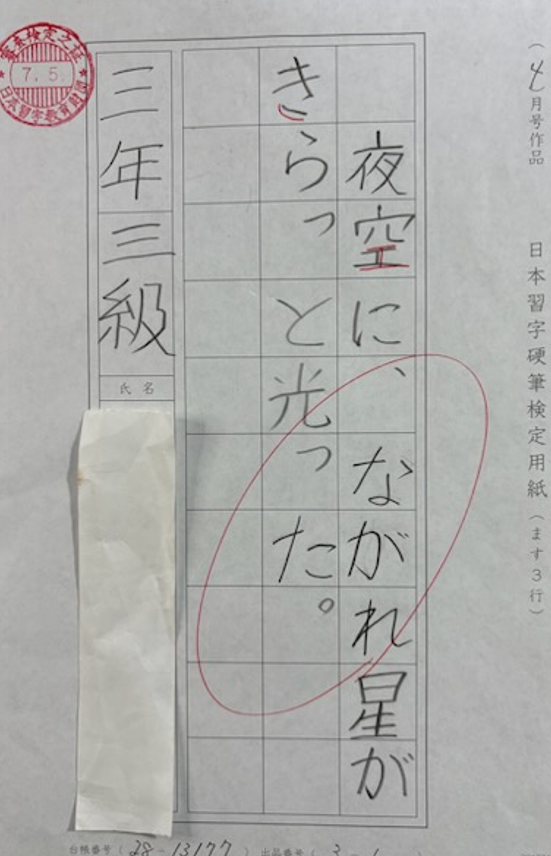 (4月号作品
日本習字硬筆検定用紙(ます3行)
夜空に、ながれ星が
きらっと光った。
三年三級
氏名
7.5
日本習字教育財団
台帳番号(28-13177)出品番号(3-